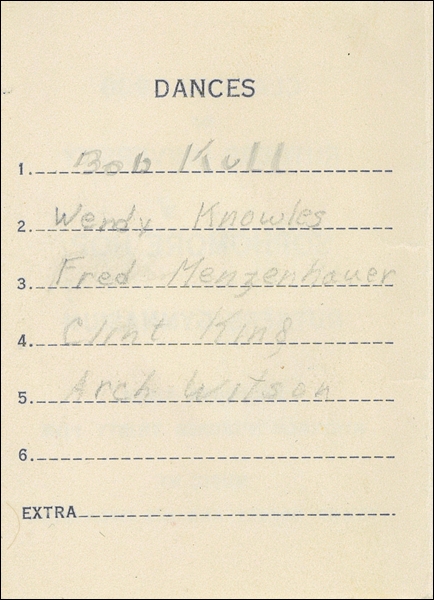 DANCES
1. Bob Kull
2. Wendy Knowles
3. Fred Menzenhauer
4. Clint King
5. Arch Witson
6.
EXTRA